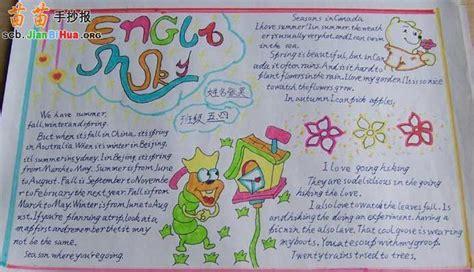 苗苗手抄报
scb.JianBiHua.ORG
ENGLISH
SKY
姓名
班级 五、四
We have summer,
fall, winter and spring.
But when it's fall in China, it's spring
in Australia. When it's winter in Beijing,
it's summer in Sydney. In Beijing it's spring
from March to May. Summer is from June
to August. Fall is September to Novembe
r to February the next year. Fall is from
March to May. Winter is from June to Aug
ust. If you're planning a trip, look at a
map first and remember that it may
not be the same.
Season where you're going.
Seasons in Canada
I love summer! In summer, the weath
er is usually very hot, and I can swim
in the sea.
Spring is beautiful, but in Can
ada it often rains. And it's hard to
plant flowers in the rain. I love my garden! It is so nice
to watch the flowers grow.
In autumn I can pick apples,
I love going hiking
They are so delicious in the going
hiking the love.
I also love to watch the leaves fall. Is
and hiking the doing an experiment, having a
picnic in the also love. That cool grove is wearing
my boots. You cate soup with my group.
Twenty trains tried to trees.